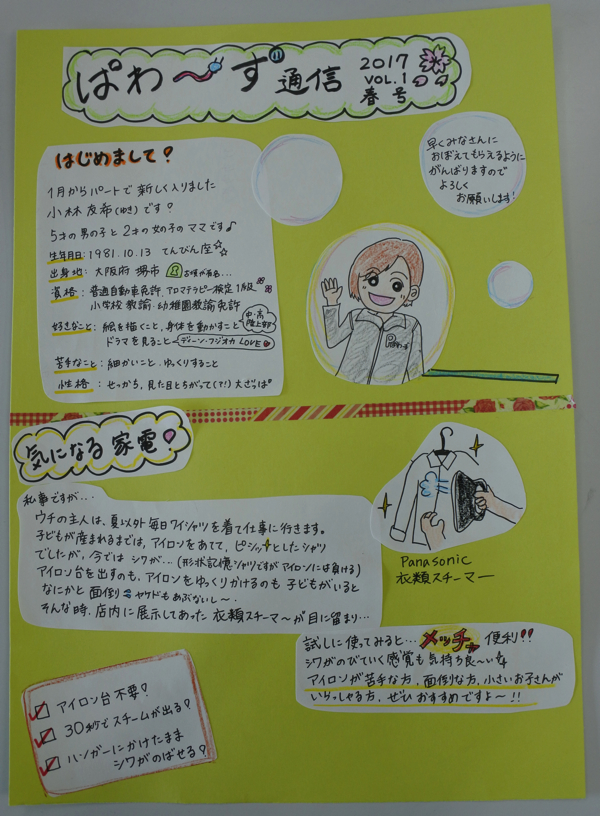 ぱわ〜ず通信
2017
VOL.1
春号
はじめまして?
1月からパートで新しく入りました
小林友希(ゆき)です?
5才の男の子と2才の女の子のママです♪
生年月日:1981.10.13 てんびん座☆☆
出身地:大阪府 堺市 古墳が有名…
資格:普通自動車免許、アロマテラピー検定1級
小学校教諭・幼稚園教諭免許
好きなこと:絵を描くこと、身体を動かすこと
中・高陸上部
ドラマを見ること ディーン・フジオカ LOVE
苦手なこと:細かいこと、ゆっくりすること
性格:せっかち、見た目とちがって(?!)大ざっぱ
早くみなさんに
おぼえてもらえるように
がんばりますので
よろしく
お願いします!
気になる家電
私事ですが…
ウチの主人は、夏以外毎日ワイシャツを着て仕事に行きます。
子どもが産まれるまでは、アイロンをあてて、ピシッとしたシャツ
でしたが、今ではシワが…(形状記憶シャツですがアイロンには負ける)
アイロン台を出すのも、アイロンをゆっくりかけるのも子どもがいると
なにかと面倒 ヤケドもあぶないし〜
そんな時、店内に展示してあった衣類スチーマーが目に留まり…
Panasonic
衣類スチーマー
試しに使ってみると…メッチャ便利!!
シワがのびていく感覚も気持ち良〜い
アイロンが苦手な方、面倒な方、小さいお子さんが
いらっしゃる方、ぜひおすすめですよ〜!!
アイロン台不要?
30秒でスチームが出る?
ハンガーにかけたまま
シワがのばせる?